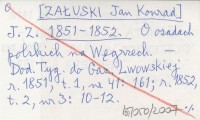 [ZAŁUSKI Jan Konrad]
J. Z. 1851-1852. O osadach
polskich na Węgrzech. –
Dod. Tyg. do Gaz. Lwowskiej
r. 1851, t. 1, nr 41: 161; r. 1852,
t. 2, nr 3: 10-12.